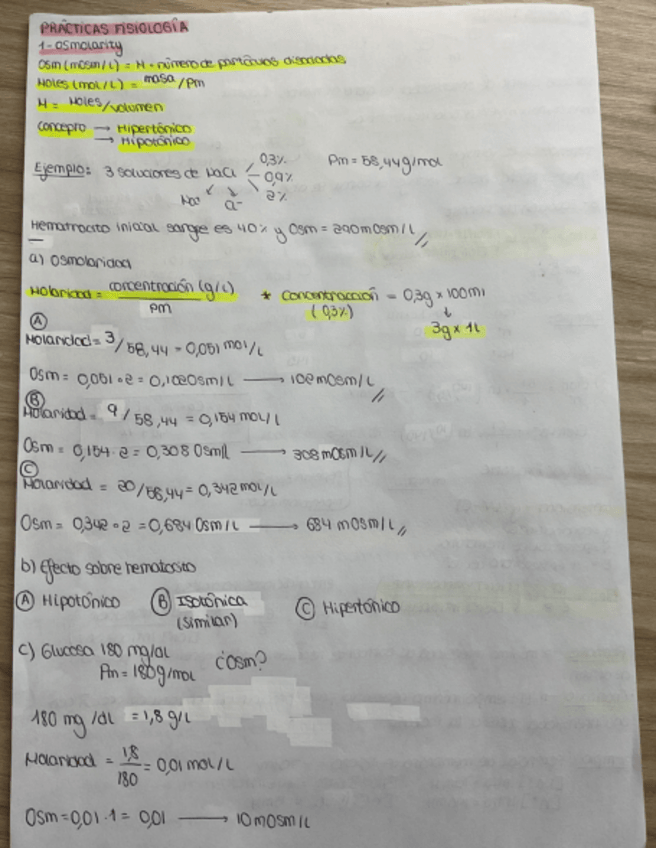 PRÁCTICAS FISIOLOGÍA
1-Osmolarity
Osm (mosm/L) = M · número de partículas disociadas
Moles (mol/L) = masa/Pm
M = Moles/volumen
Concepto → Hipertónico
→ Hipotónico
Ejemplo: 3 soluciones de NaCl 0,3% 0,9% 2% Pm = 58,44g/mol
Na+ Cl-
Hematrocito inicial sangre es 40% y Osm = 290mosm/L //
a) Osmolaridad
Molaridad = concentración (g/L) / Pm * Concentración = 0,3g x 100ml
(0,3%) ↓
3g x 1L
A
Molaridad = 3/58,44 = 0,051 mol/L
Osm = 0,051 · 2 = 0,102 Osm/L → 102 mosm/L //
B
Molaridad = 9/58,44 = 0,154 mol/L
Osm = 0,154 · 2 = 0,308 Osm/L → 308 mOsm/L //
C
Molaridad = 20/58,44 = 0,342 mol/L
Osm = 0,342 · 2 = 0,684 Osm/L → 684 mOsm/L //
b) Efecto sobre hematocito
A Hipotónico B Isotónica C Hipertónico
(similar)
c) Glucosa 180 mg/dL ¿Osm?
Pm = 180g/mol
180 mg/dL = 1,8 g/L
Molaridad = 1,8/180 = 0,01 mol/L
Osm = 0,01 · 1 = 0,01 → 10 mosm/L